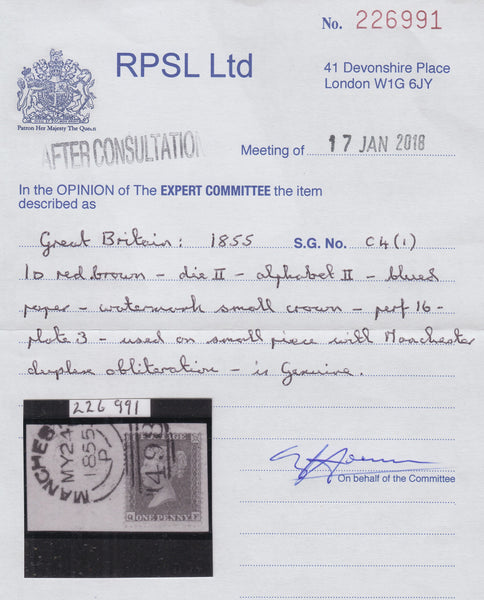 No. 226991
RPSL Ltd
41 Devonshire Place
London W1G 6JY
Patron Her Majesty The Queen
AFTER CONSULTATION
Meeting of 17 JAN 2018
In the OPINION of The EXPERT COMMITTEE the item
described as
Great Britain: 1855 S.G. No. C4(1)
1D red brown - die II - alphabet II - blued
paper - watermark small crown - perf 16 -
plate 3 - used on small piece with Manchester
duplex obliteration - is Genuine.
226 991
MANCHES
MY 24
1855
P
498
POSTAGE
ONE PENNY
On behalf of the Committee